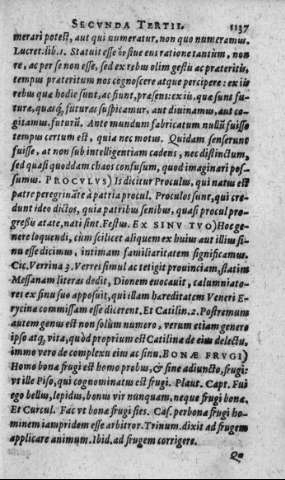 SECVNDA TERTII. 1137
merari potest, aut qui numeratur, non quo numeramus.
Lucret. lib. 1. Statuit esse ὡσ siue ens ratione tantùm, non
re, ac per se non esse, sed ex rebus olim gestis ac præteritis,
tempus præteritum nos cognoscere atque percipere: ex iis
rebus quæ hodie sunt, ac fiunt, præsens: ex iis. quæ sunt fu-
turæ, quasq́, futuras suspicamur, aut diuinamus, aut co-
gitamus, futurũ. Ante mundum fabricatum nullũ fuisse
tempus certum est, quia nec motus. Quidam senserunt
fuisse, at non sub intelligentiam cadens, nec distinctum,
sed quasi quoddam chaos confusum, quod imaginari pos-
sumus. PROCVLVS) Is dicitur Proculus, qui natus est
patre peregrinãte à patria procul. Proculos sunt, qui cre-
dunt ideo dictos, quia patribus senibus, quasi procul pro-
gressa ætate, nati sint. Festus. EX SINV TVO) Hoc ge-
nere loquendi, cùm scilicet aliquem ex huius aut illius si-
nu esse dicimus, intimam familiaritatem significamus.
Cic. Verrina 3. Verres simul ac tetigit prouinciam, statim
Messanam literas dedit, Dionem euocauit, calumniato-
res ex sinu suo apposuit, qui illam hæreditatem Veneri E-
rycinæ commissam esse dicerent. Et Catilin. 2. Postremum
autem genus est non solùm numero, verum etiam genere
ipso atq́, vita, quod proprium est Catilinæ de eius delectu,
immo vero de complexu eius ac sinu. BONÆ FRVGI)
Homo bonæ frugi est homo probus, & sine adiuncto, frugi:
vt ille Piso, qui cognominatus est frugi. Plaut. Capt. Fui
ego bellus, lepidus, bonus vir nunquam, neque frugi bonæ.
Et Curcul. Fac vt bonæ frugi sies. Cas. perbona frugi ho-
minem iampridem esse arbitror. Trinum. dixit ad frugem
applicare animum. Ibid. ad frugem corrigere.